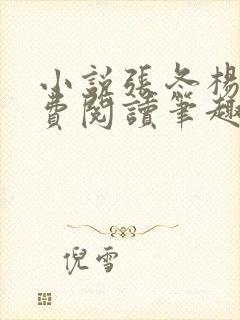 小説張冬楊
費閱讀筆趣
倪雪